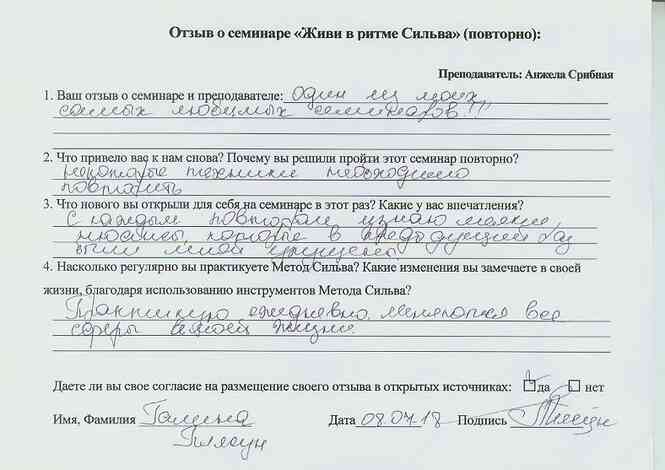 Отзыв о семинаре «Живи в ритме Сильва» (повторно):
Преподаватель: Анжела Срибная
1. Ваш отзыв о семинаре и преподавателе: один из моих
самых любимых семинаров!!!
2. Что привело вас к нам снова? Почему вы решили пройти этот семинар повторно?
некоторые техники необходимо
повторить
3. Что нового вы открыли для себя на семинаре в этот раз? Какие у вас впечатления?
С каждым повтором узнаю мелкие
нюансы, которые в предыдущий раз
были мной упущены
4. Насколько регулярно вы практикуете Метод Сильва? Какие изменения вы замечаете в своей
жизни, благодаря использованию инструментов Метода Сильва?
Практикую ежедневно, меняются все
сферы моей жизни.
Даете ли вы свое согласие на размещение своего отзыва в открытых источниках: да нет
Имя, Фамилия Галина Дата 08.07.18 Подпись
Плясун